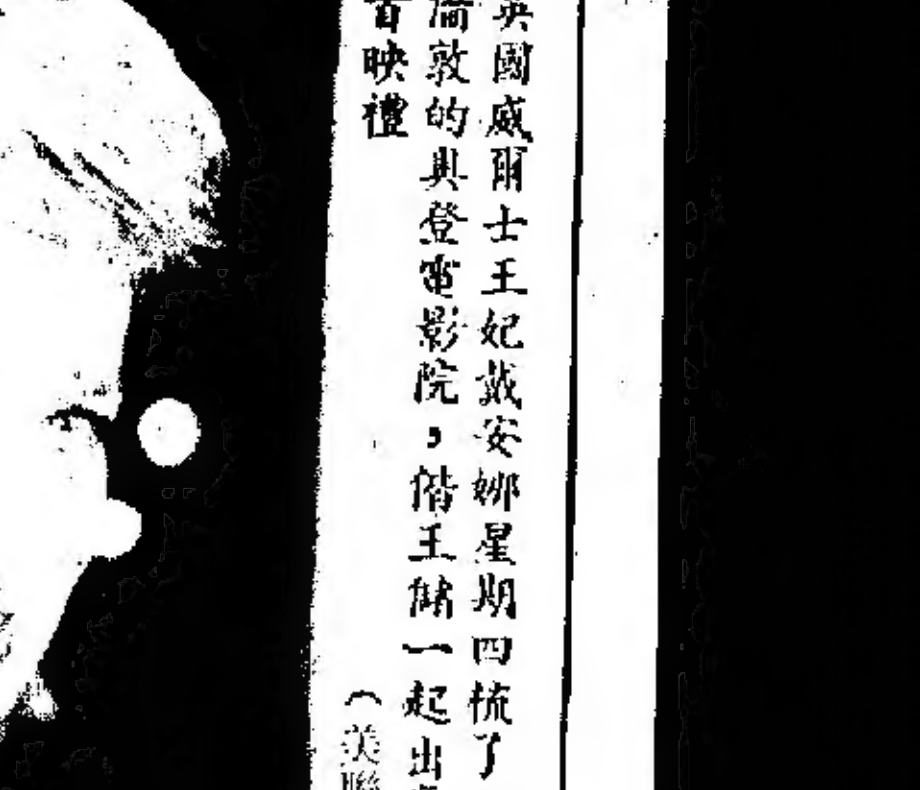 英國威爾士王妃戴安娜星期四梳了
倫敦的奥登電影院，偕王儲一起出
首映禮
（美聯